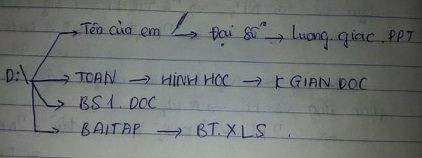 Tên của em → Đại số → Luong giac.PPT
D:\ → TOAN → HÌNH HOC → K GIAN.DOC
→ BS1.DOC
→ BAITAP → BT.XLS.